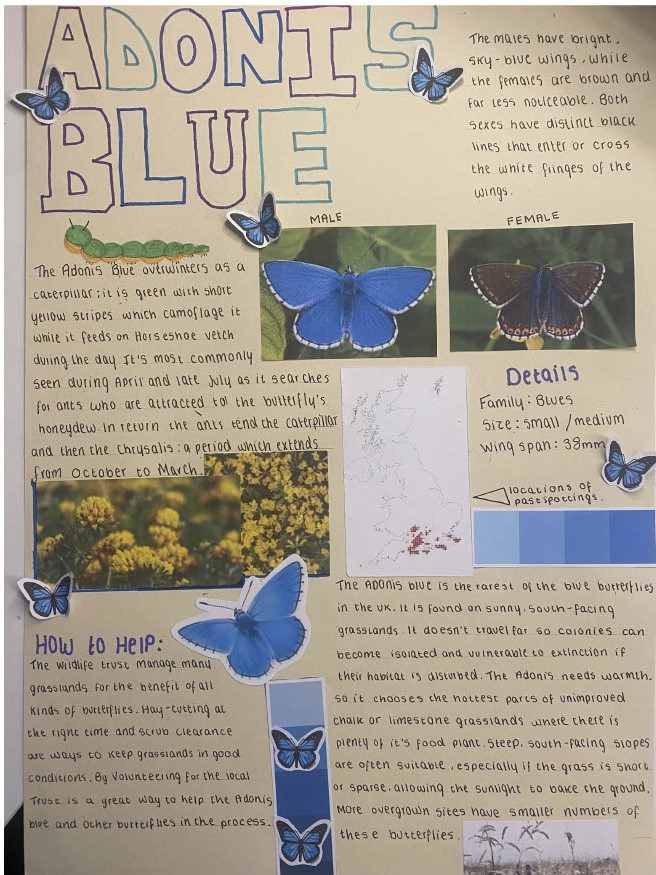 ADONIS
BLUE
The males have bright,
sky-blue wings, while
the females are brown and
far less noticeable. Both
sexes have distinct black
lines that enter or cross
the white fringes of the
wings.
MALE
FEMALE
The Adonis Blue overwinters as a
caterpillar; it is green with short
yellow stripes which camoflage it
while it feeds on Horseshoe vetch
during the day. It's most commonly
seen during April and late July as it searches
for ants who are attracted to the butterfly's
honeydew. In return the ants tend the caterpillar
and then the chrysalis: a period which extends
from October to March.
Details
Family: Blues
Size: small / medium
Wing span: 38mm
locations of
past spottings.
HOW to HELP:
The wildlife trust manage many
grasslands for the benefit of all
kinds of butterflies. Hay-cutting at
the right time and scrub clearance
are ways to keep grasslands in good
conditions. By volunteering for the local
Trust is a great way to help the Adonis
blue and other butterflies in the process.
The ADOnis blue is the rarest of the blue butterflies
in the UK. It is found on sunny, south-facing
grasslands. It doesn't travel far so colonies can
become isolated and vulnerable to extinction if
their habitat is disturbed. The Adonis needs warmth,
so it chooses the hottest parts of unimproved
chalk or limestone grasslands where there is
plenty of it's food plant. Steep, south-facing slopes
are often suitable, especially if the grass is short
or sparse, allowing the sunlight to bake the ground.
More overgrown sites have smaller numbers of
these butterflies.